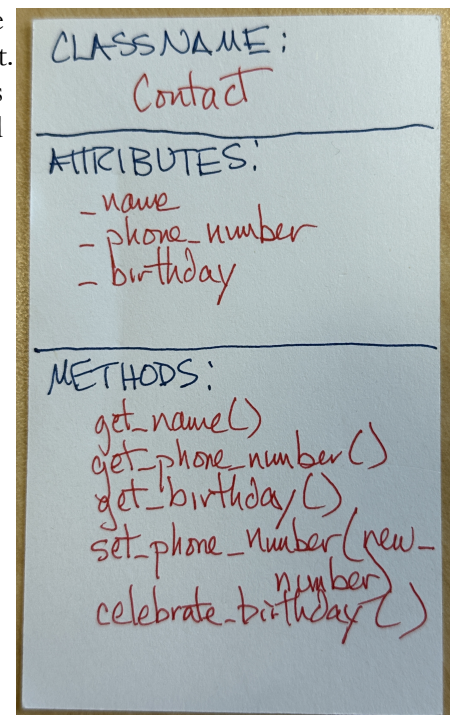 e
t.
s
l
CLASSNAME:
Contact
ATTRIBUTES:
_name
_phone_number
_birthday
METHODS:
get_name()
get_phone_number()
get_birthday()
set_phone_number(new_
number)
celebrate_birthday()